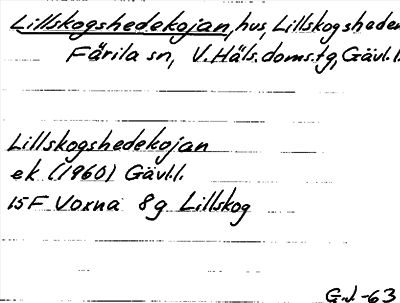 Lillskogshedekojan, hus, Lillskogsheden
Färila sn, V.Häls.doms.tg, Gävl.l.
Lillskogshedekojan
ek. (1960) Gävl.l.
15F Voxna 8g Lillskog
G.J.-63